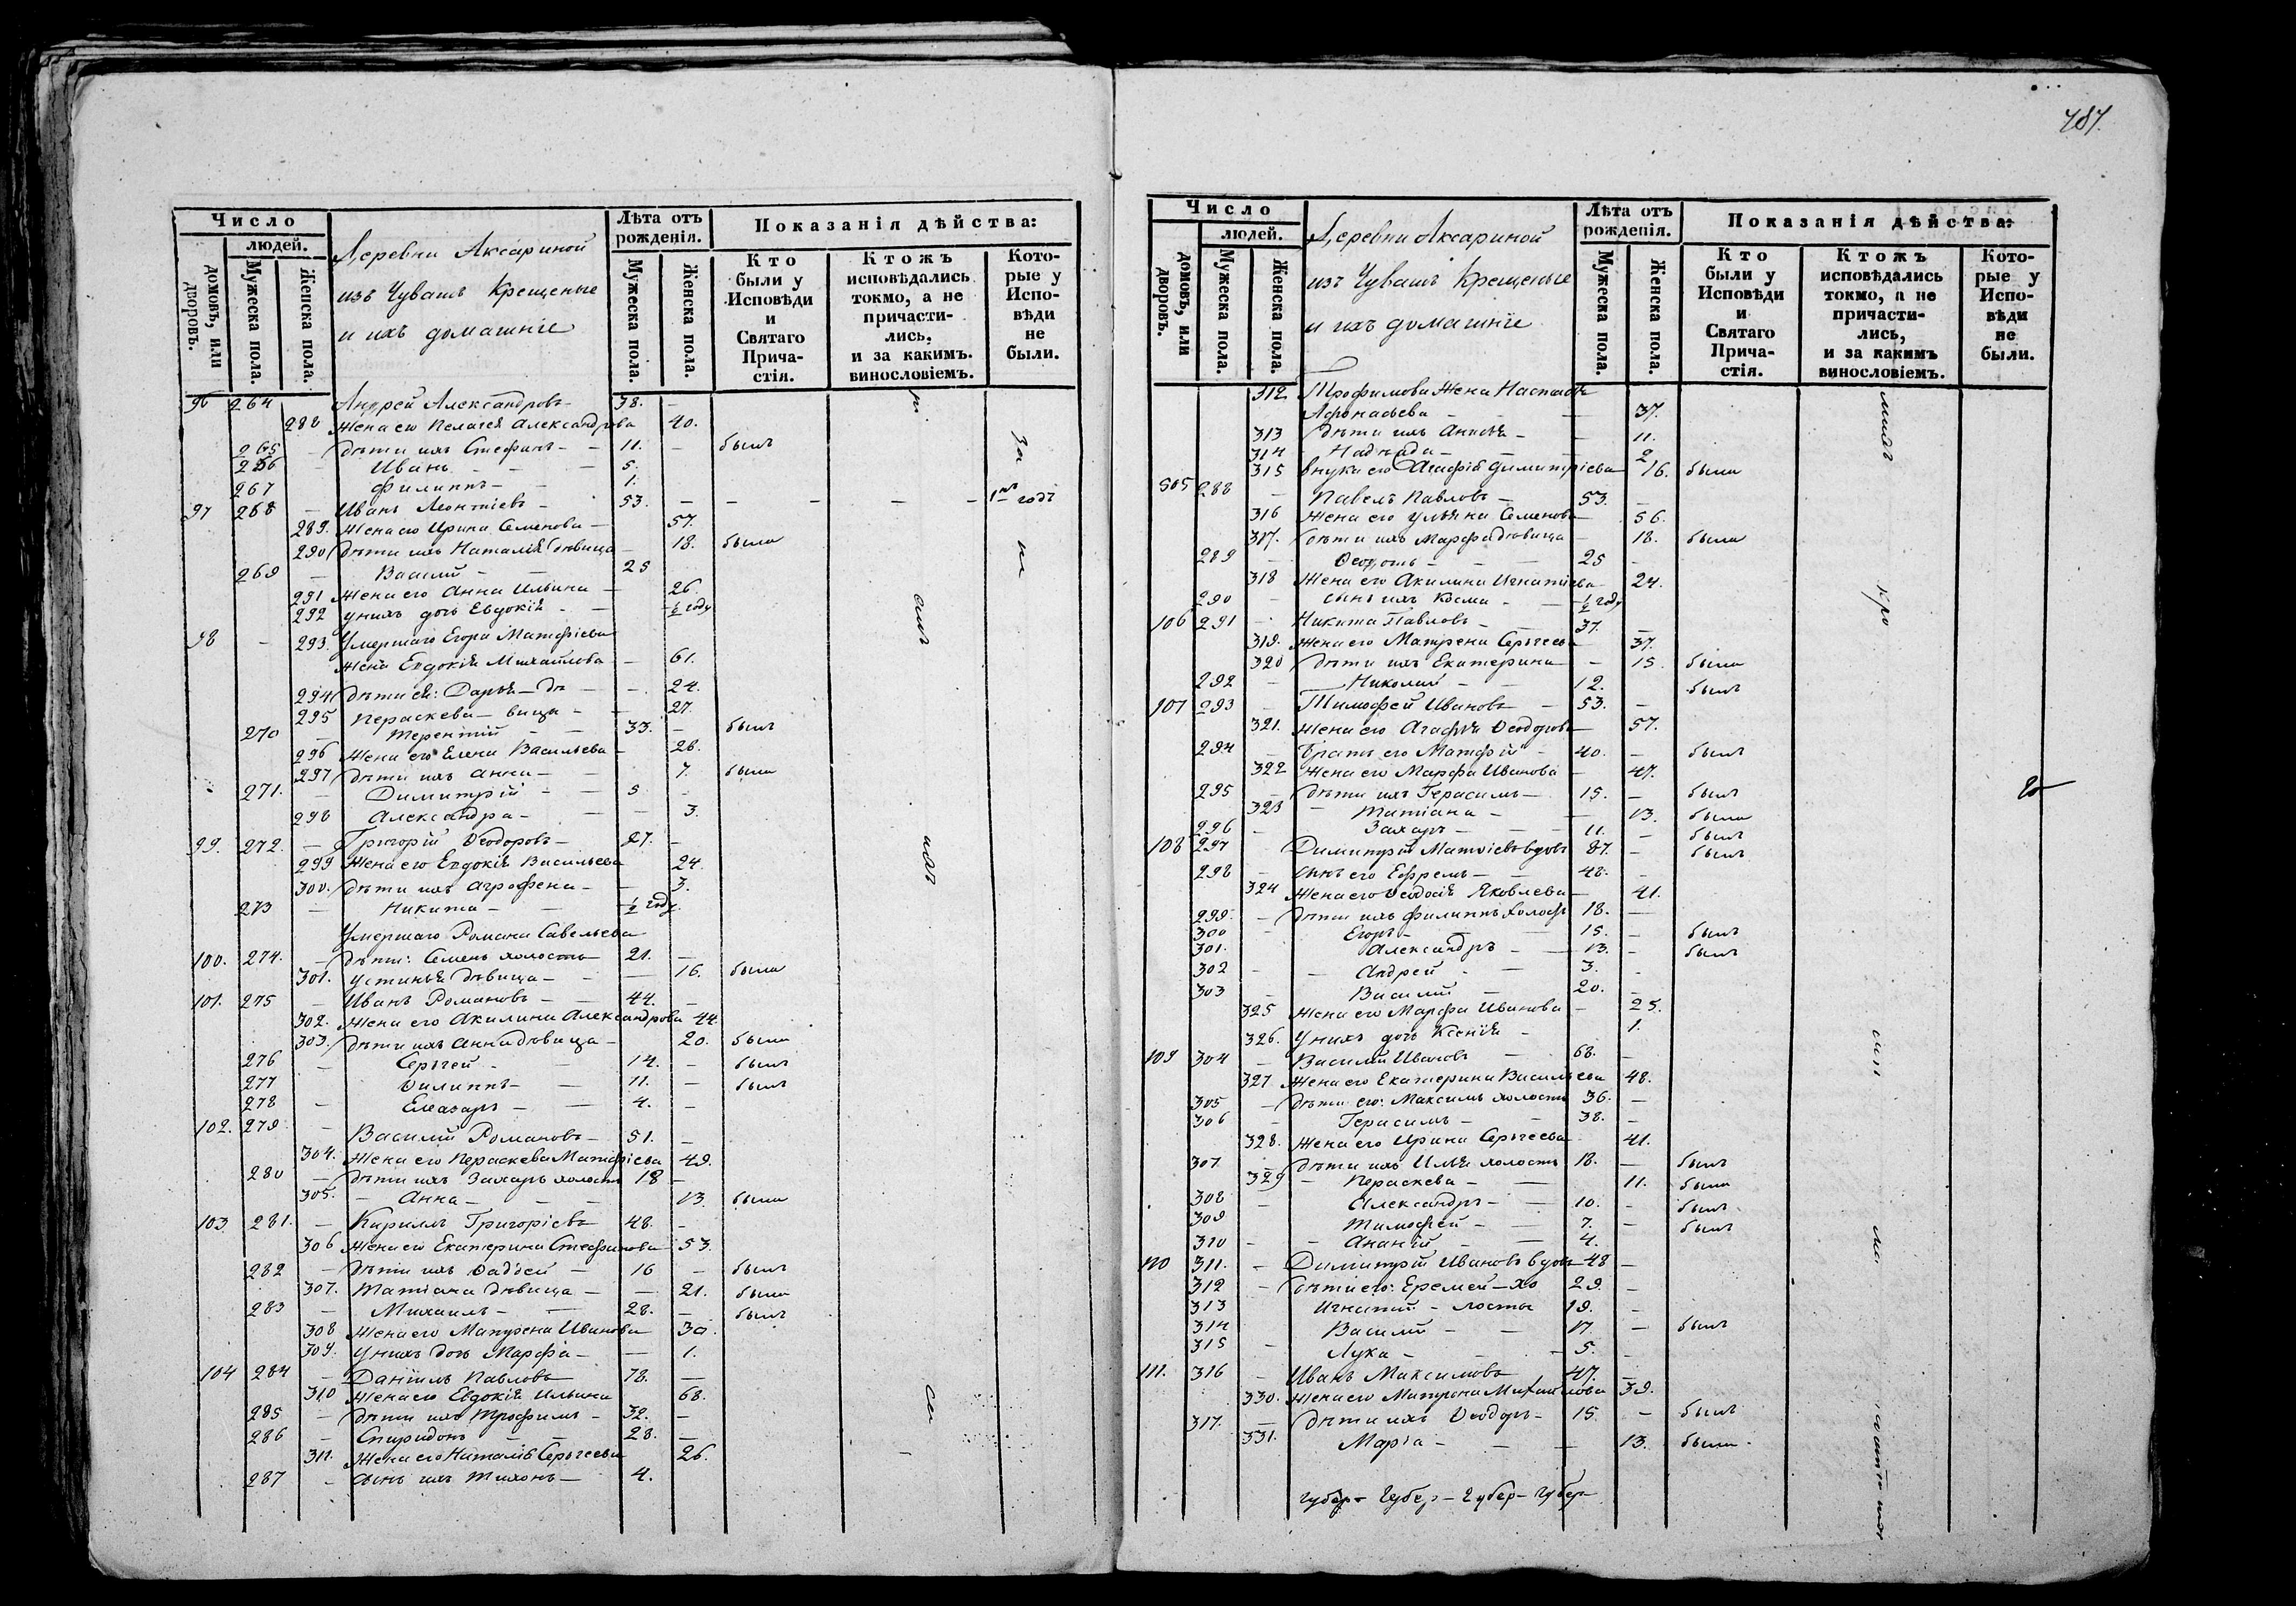 Число
людей.
домовъ, или дворовъ.
Мужеска пола.
Женска пола.
Деревни Аксариной
изъ Чувашъ Крещеные
и ихъ домашніе
Лѣта отъ рожденія.
Мужеска пола.
Женска пола.
Показанія дѣйства:
Кто были у Исповѣди и Святаго Прича-стія.
Ктожъ исповѣдались токмо, а не причасти-лись, и за какимъ винословіемъ.
Кото-рые у Испо-вѣди не были.
96 264 Андрей Александровъ 38. —
288 Жена его Пелагея Александрова 40.
265 — дѣти ихъ Стефанъ — 11. — былъ
266 — Иванъ — 5.
267 Филиппъ — 1.
97 268 — Иванъ Леонтіевъ — 53. — — — — 1й годъ
289. Жена его Ирина Семенова — 57.
290 дѣти ихъ Наталія дѣвица — 18. была
269 — Василій — 25
291 Жена его Анна Ильина — 26.
292 у нихъ дочь Евдокія — ½ году
98 — 293. Умершаго Егора Матфіева
жена Евдокія Михайлова — 61.
294 дѣти ея: Дарья — дѣ — 24.
295 Пераскева — вица — 27.
270 — Терентій — 33. — былъ
296 Жена его Елена Васильева — 28.
297 дѣти ихъ Анна — 7. была
271. — Димитрій — 5 —
298 Александра — 3.
99. 272. — Григорій Ѳеодоровъ — 27. —
299 Жена его Евдокія Васильева 24.
300. дѣти ихъ Агрофена — 3.
273 — Никита — ½ году.
Умершаго Романа Савельева
100. 274. — дѣти: Семенъ холостъ 21. —
301. Устинья дѣвица — 16. была
101. 275 — Иванъ Романовъ — 44. —
302. Жена его Акилина Александрова 44.
303. дѣти ихъ Анна дѣвица — 20. была
276 — Сергей — 14. — былъ
277 Филиппъ — 11. — былъ
278 — Елеазаръ — 4. —
102. 279 — Василій Романовъ — 51. —
304. Жена его Пераскева Матфіева 49.
280 — дѣти ихъ Захаръ холостъ 18 —
305. — Анна — 13. была
103 281. — Кириллъ Григоріевъ 48. —
306 Жена его Екатерина Стефанова 53.
282 — дѣти ихъ Фаддей — 16 — былъ
307. Татіана дѣвица — 21. была
283 — Михаилъ — 28. — былъ
308 Жена его Матрена Иванова 30.
309. У нихъ дочь Марфа — 1.
104 284 — Даніилъ Павловъ 78. —
310 Жена его Евдокія Ильина 68.
285 — дѣти ихъ Трофимъ — 32. —
286 — Спиридонъ — 28. —
311. Жена его Наталія Сергеева 26.
287 — сынъ ихъ Тихонъ — 4.
487.
Число
людей.
домовъ, или дворовъ.
Мужеска пола.
Женска пола.
Деревни Аксариной
изъ Чувашъ Крещеные
и ихъ домашніе
Лѣта отъ рожденія.
Мужеска пола.
Женска пола.
Показанія дѣйства:
Кто были у Исповѣди и Святаго Прича-стія.
Ктожъ исповѣдались токмо, а не причасти-лись, и за какимъ винословіемъ.
Кото-рые у Испо-вѣди не были.
312 Трофимова Жена Настасія
Афонасьева — 37.
313 дѣти ихъ Анисья — 11.
314 Надежда — 2
315 внука его Агафія Димитріева 16. была
105 288 — Павелъ Павловъ — 53. —
316 Жена его Ульяна Семенова 56.
317. дѣти ихъ Марфа дѣвица — 18. была
289 — Ѳедотъ — 25 —
318 Жена его Акилина Игнатіева 24.
290 — сынъ ихъ Косма — ½ году
106 291 — Никита Павловъ — 37. —
319. Жена его Матрена Сергеева 37.
320 дѣти ихъ Екатерина — 15. была
292 — Николай — 12. былъ
107 293 — Тимофей Ивановъ — 53. —
321. Жена его Агафья Ѳеодорова 57.
294 — Братъ его Матфій — 40. — былъ
322 Жена его Марфа Иванова — 47.
295 — дѣти ихъ Герасимъ — 15. — былъ
323 — Татіана — 13. была
296 — Захаръ — 11. — былъ
108 297 Димитрій Матвіевъ вдовъ 87. — былъ
298 — сынъ его Ефремъ — 48. —
324 Жена его Ѳеодосія Яковлева — 41.
299. — дѣти ихъ Филиппъ холостъ 18. —
300 — Егоръ — 15. — былъ
301. Александръ — 13. — былъ
302 — Андрей — 3. —
303 — Василій — 20. —
325 Жена его Марфа Иванова — 25.
326. У нихъ дочь Ксенія — 1.
109 304 — Василій Ивановъ — 68. —
327 Жена его Екатерина Васильева 48.
305 — дѣти его: Максимъ холостъ 36. —
306 — Герасимъ — 38. —
328. Жена его Ирина Сергеева 41.
307. — дѣти ихъ Илья холостъ 18. — былъ
329 — Пераскева — 11. была
308 — Александръ — 10. — былъ
309 Тимофей — 7. — былъ
310 — Ананій — 4.
110 311. — Димитрій Ивановъ вдовъ 48 —
312 — дѣти его: Еремей — хо 29. —
313 Игнатій — лосты 19. —
314 Василій — 17. — былъ
315 — Лука — 5. —
111. 316 — Иванъ Максимовъ 47. —
330. Жена его Матрона Михайлова 39.
317. — дѣти ихъ Ѳеодоръ — 15. — былъ
331. Марія — 13. была
Губер — Губер — Губер — Губер —